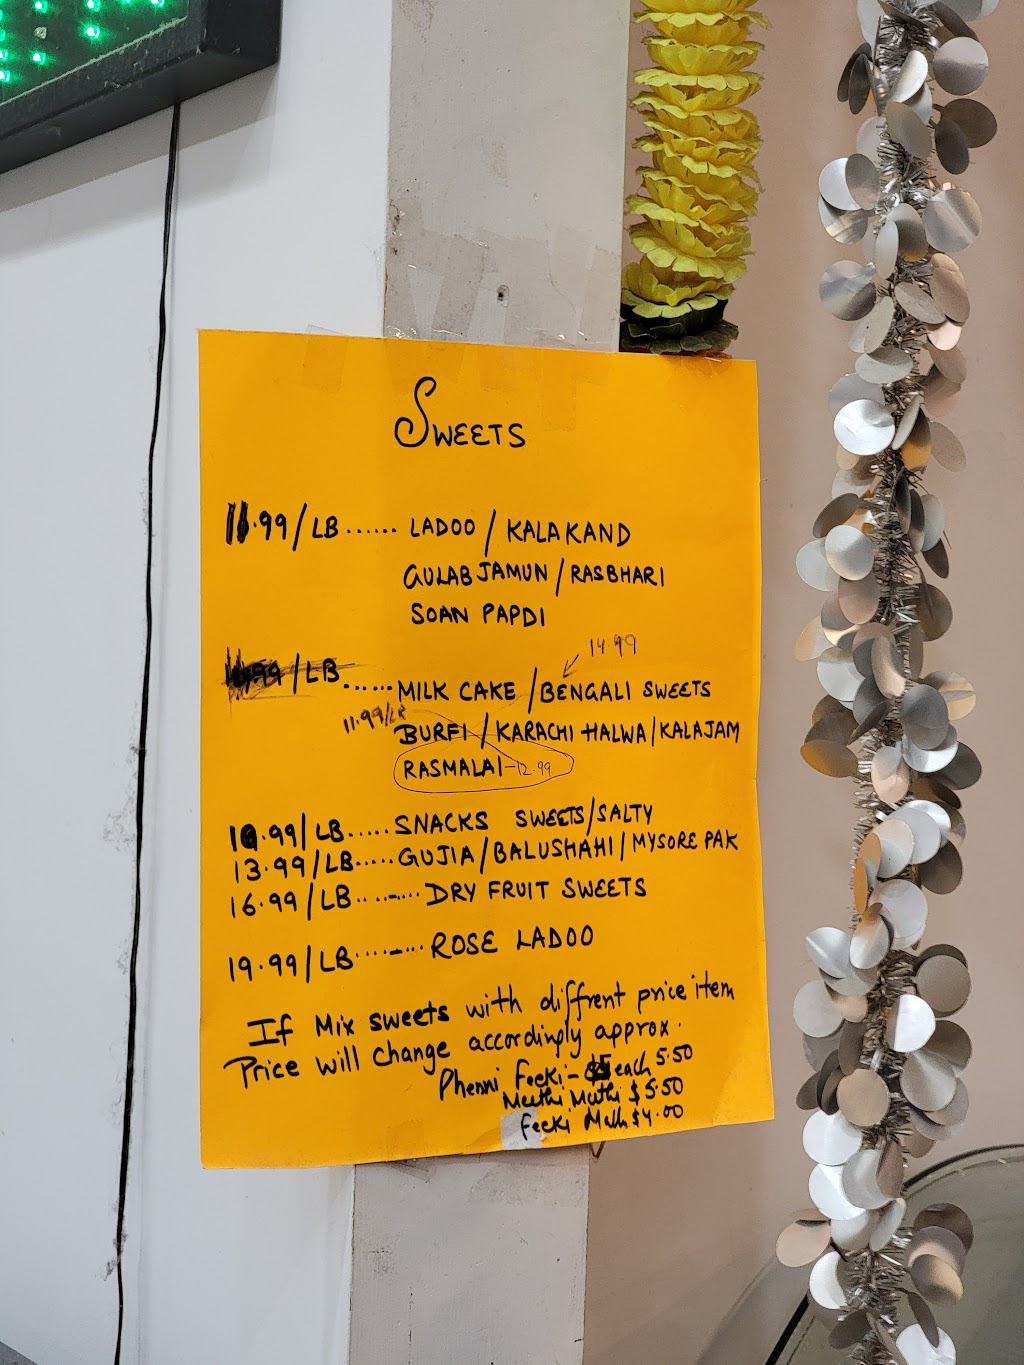 SWEETS
11.99/LB...... LADOO / KALAKAND
GULAB JAMUN / RASBHARI
SOAN PAPDI
14.99
/LB ...... MILK CAKE / BENGALI SWEETS
11.99/LB BURFI / KARACHI HALWA / KALAJAM
RASMALAI - 12.99
10.99/LB..... SNACKS SWEETS/SALTY
13.99/LB..... GUJIA / BALUSHAHI / MYSORE PAK
16.99/LB........ DRY FRUIT SWEETS
19.99/LB........ ROSE LADOO
If Mix sweets with diffrent price item
Price will change accordingly approx.
Phenni Feeki - each 5.50
Mathi $5.50
Feeki $4.00